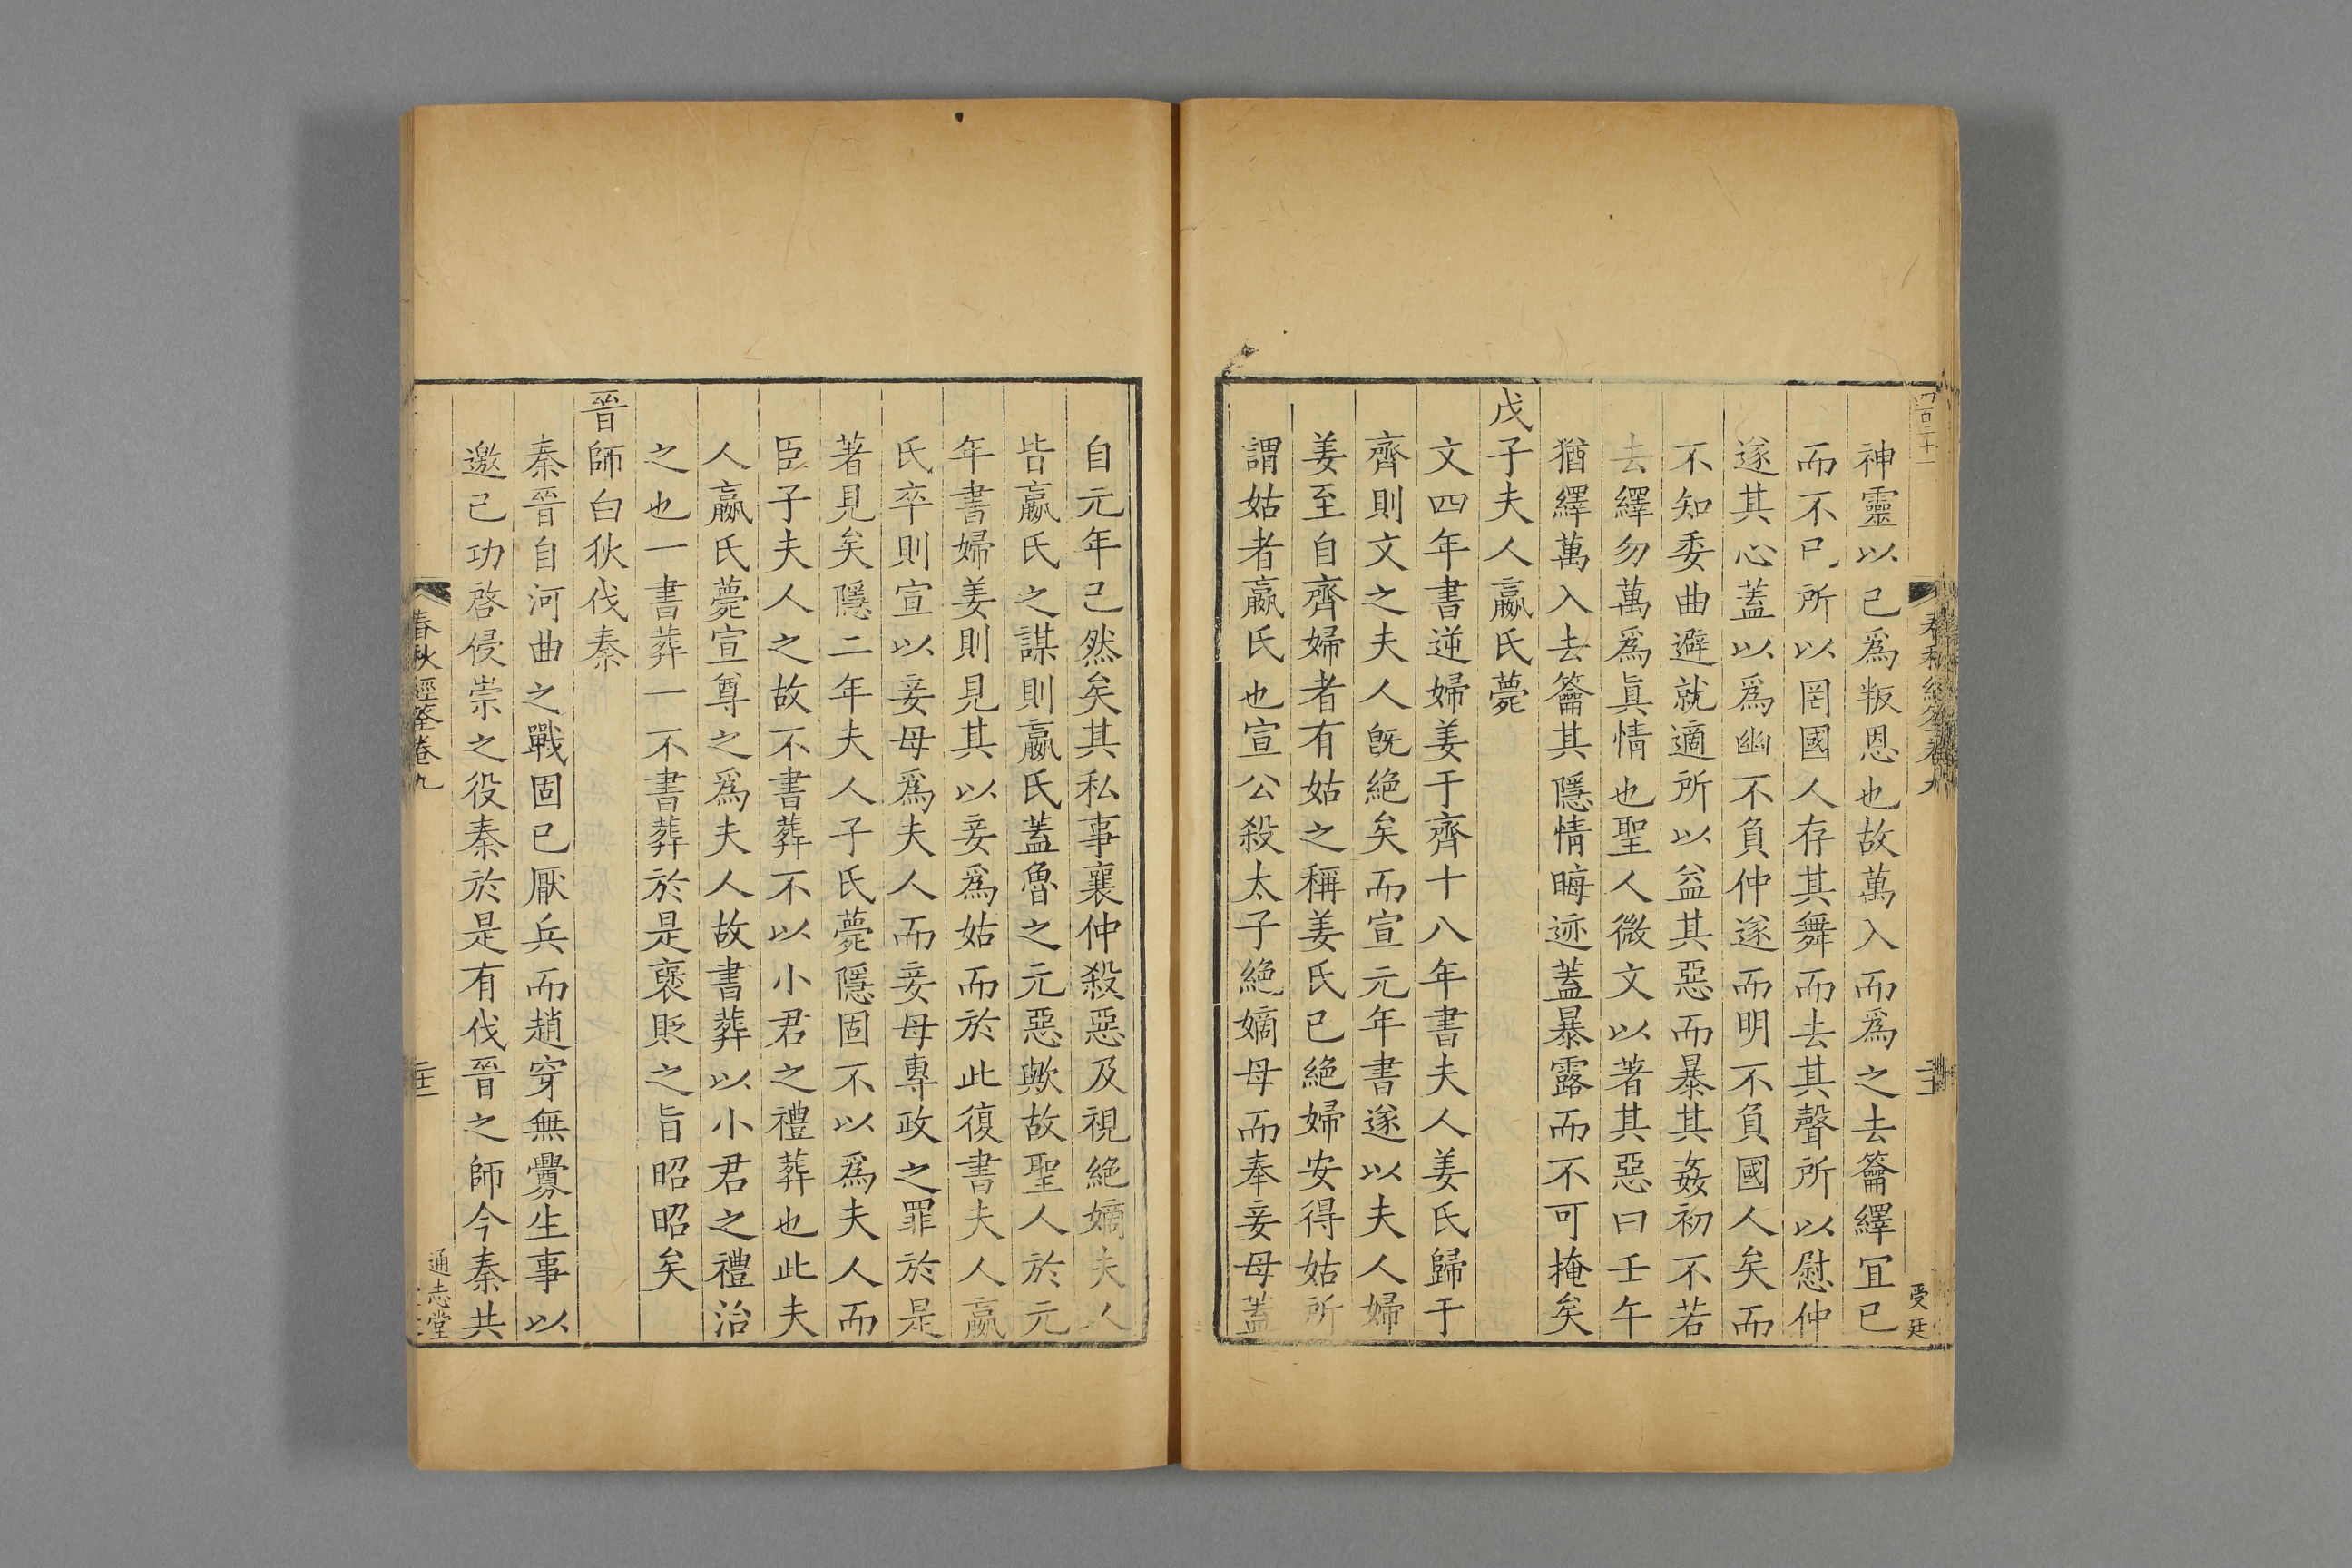 四百二十一
春秋經筌卷九
受廷
神靈以已爲叛恩也故萬入而爲之去籥繹冝已
而不已所以罔國人存其舞而去其聲所以慰仲
遂其心蓋以爲幽不負仲遂而明不負國人矣而
不知委曲避就適所以益其惡而暴其姦初不若
去繹勿萬爲眞情也聖人微文以著其惡曰壬午
猶繹萬入去籥其隱情晦迹蓋暴露而不可掩矣
戊子夫人嬴氏薨
文四年書逆婦姜于齊十八年書夫人姜氏歸于
齊則文之夫人旣絶矣而宣元年書遂以夫人婦
姜至自齊婦者有姑之稱姜氏已絶婦安得姑所
謂姑者嬴氏也宣公殺太子絶嫡母而奉妾母蓋
自元年已然矣其私事襄仲殺惡及視絶嫡夫人
皆嬴氏之謀則嬴氏蓋魯之元惡歟故聖人於元
年書婦姜則見其以妾爲姑而於此復書夫人嬴
氏卒則宣以妾母爲夫人而妾母專政之罪於是
著見矣隱二年夫人子氏薨隱固不以爲夫人而
臣子夫人之故不書葬不以小君之禮葬也此夫
人嬴氏薨宣尊之爲夫人故書葬以小君之禮治
之也一書葬一不書葬於是襃貶之旨昭昭矣
晉師白狄伐秦
秦晉自河曲之戰固已厭兵而趙穿無釁生事以
邀已功啓侵崇之役秦於是有伐晉之師今秦共
春秋經筌卷九
二十二
通志堂